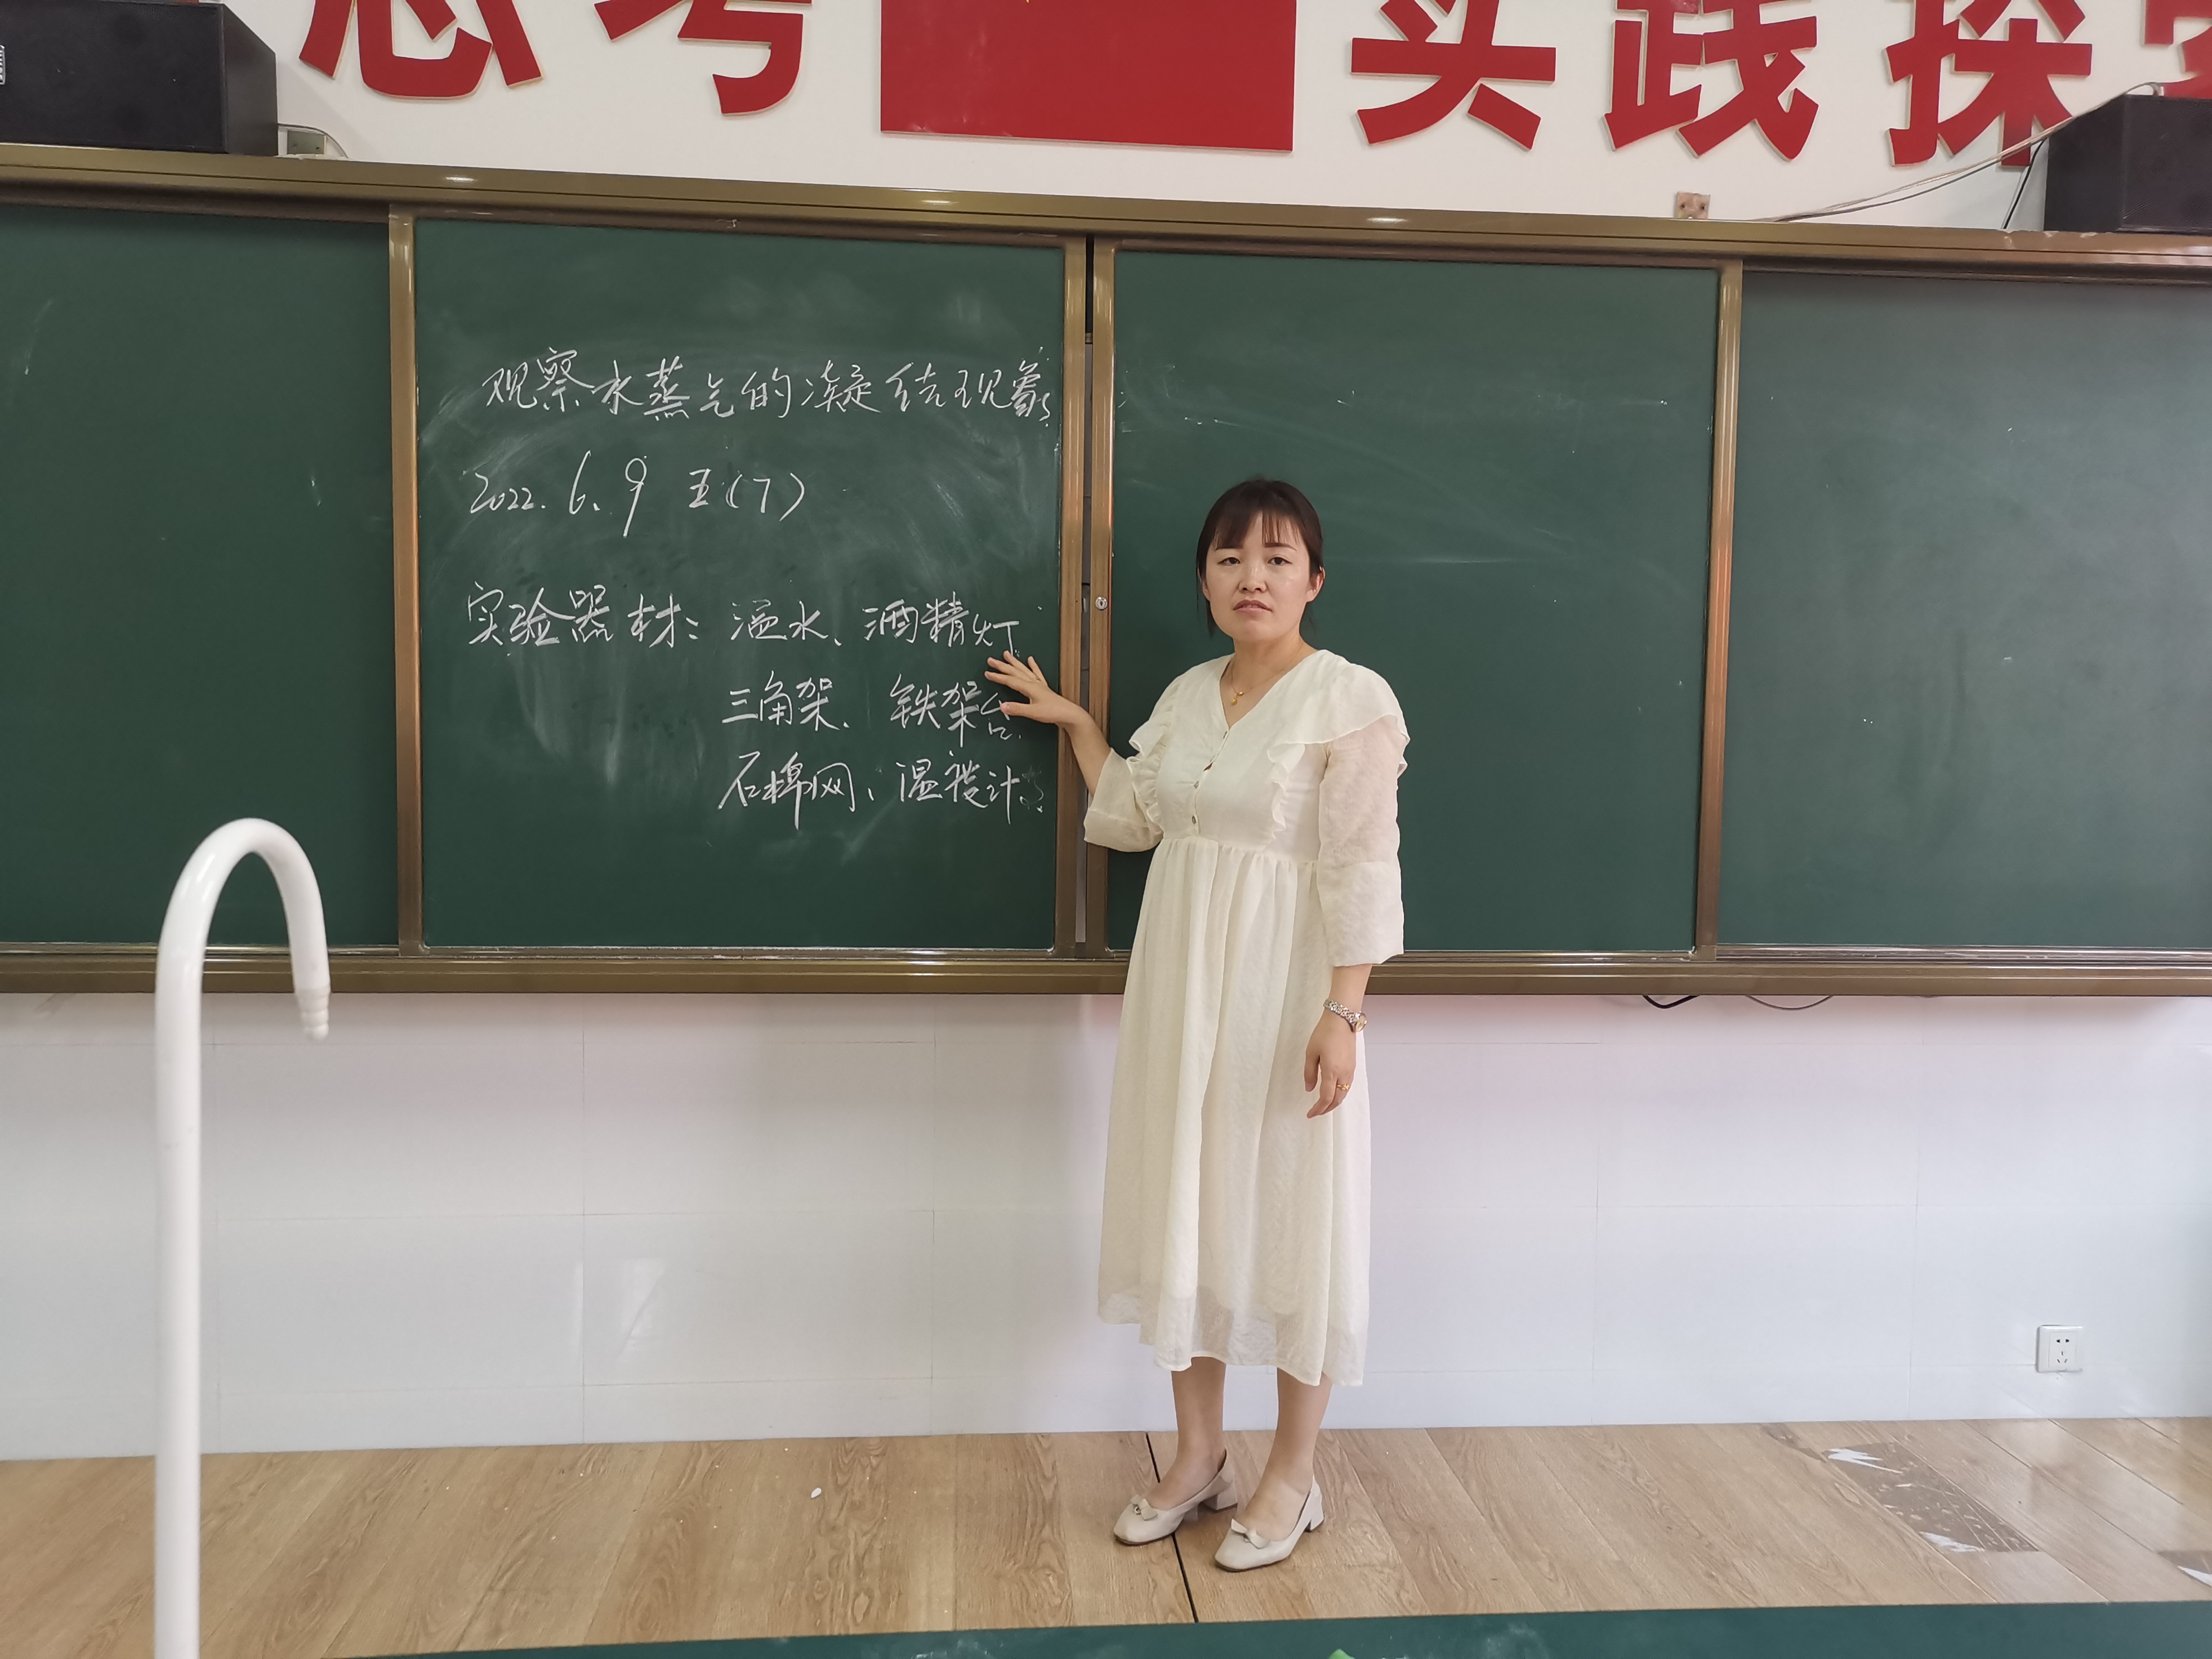 思考 实践 探究
观察水蒸气的凝结现象
2022.6.9 五(7)
实验器材: 温水、酒精灯
三角架、铁架台
石棉网、温度计